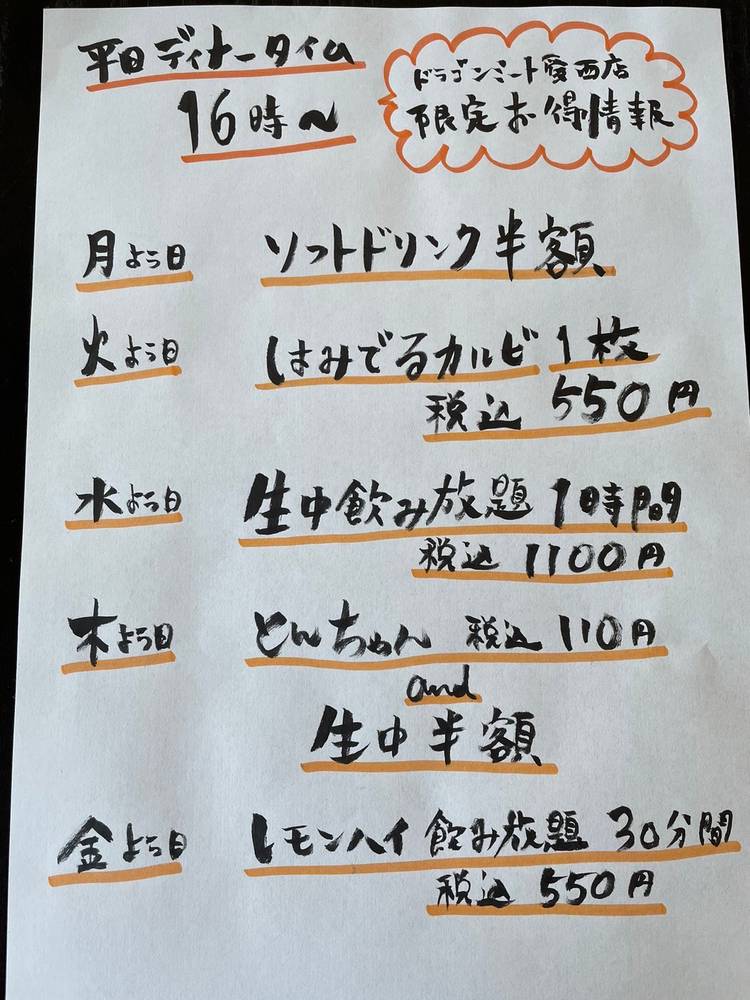 平日ディナータイム
16時〜
ドラゴンミート愛西店
限定お得情報
月よう日 ソフトドリンク半額
火よう日 はみでるカルビ 1枚
税込 550円
水よう日 生中飲み放題 1時間
税込 1100円
木よう日 とんちゃん 税込 110円
and
生中半額
金よう日 レモンハイ 飲み放題 30分間
税込 550円